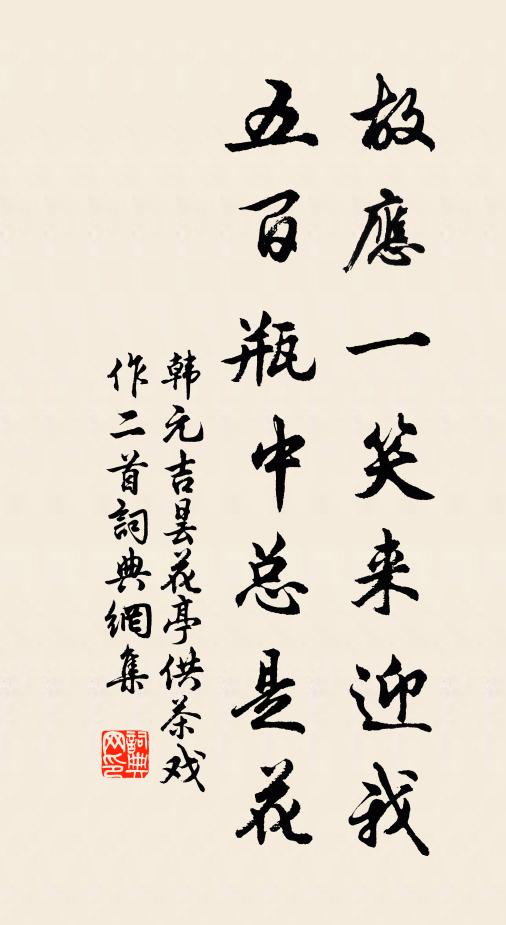 故應一笑来迎我
五百瓶中总是花
韩元吉昙花亭供茶戏
作二首詞典網集
詞典
网印